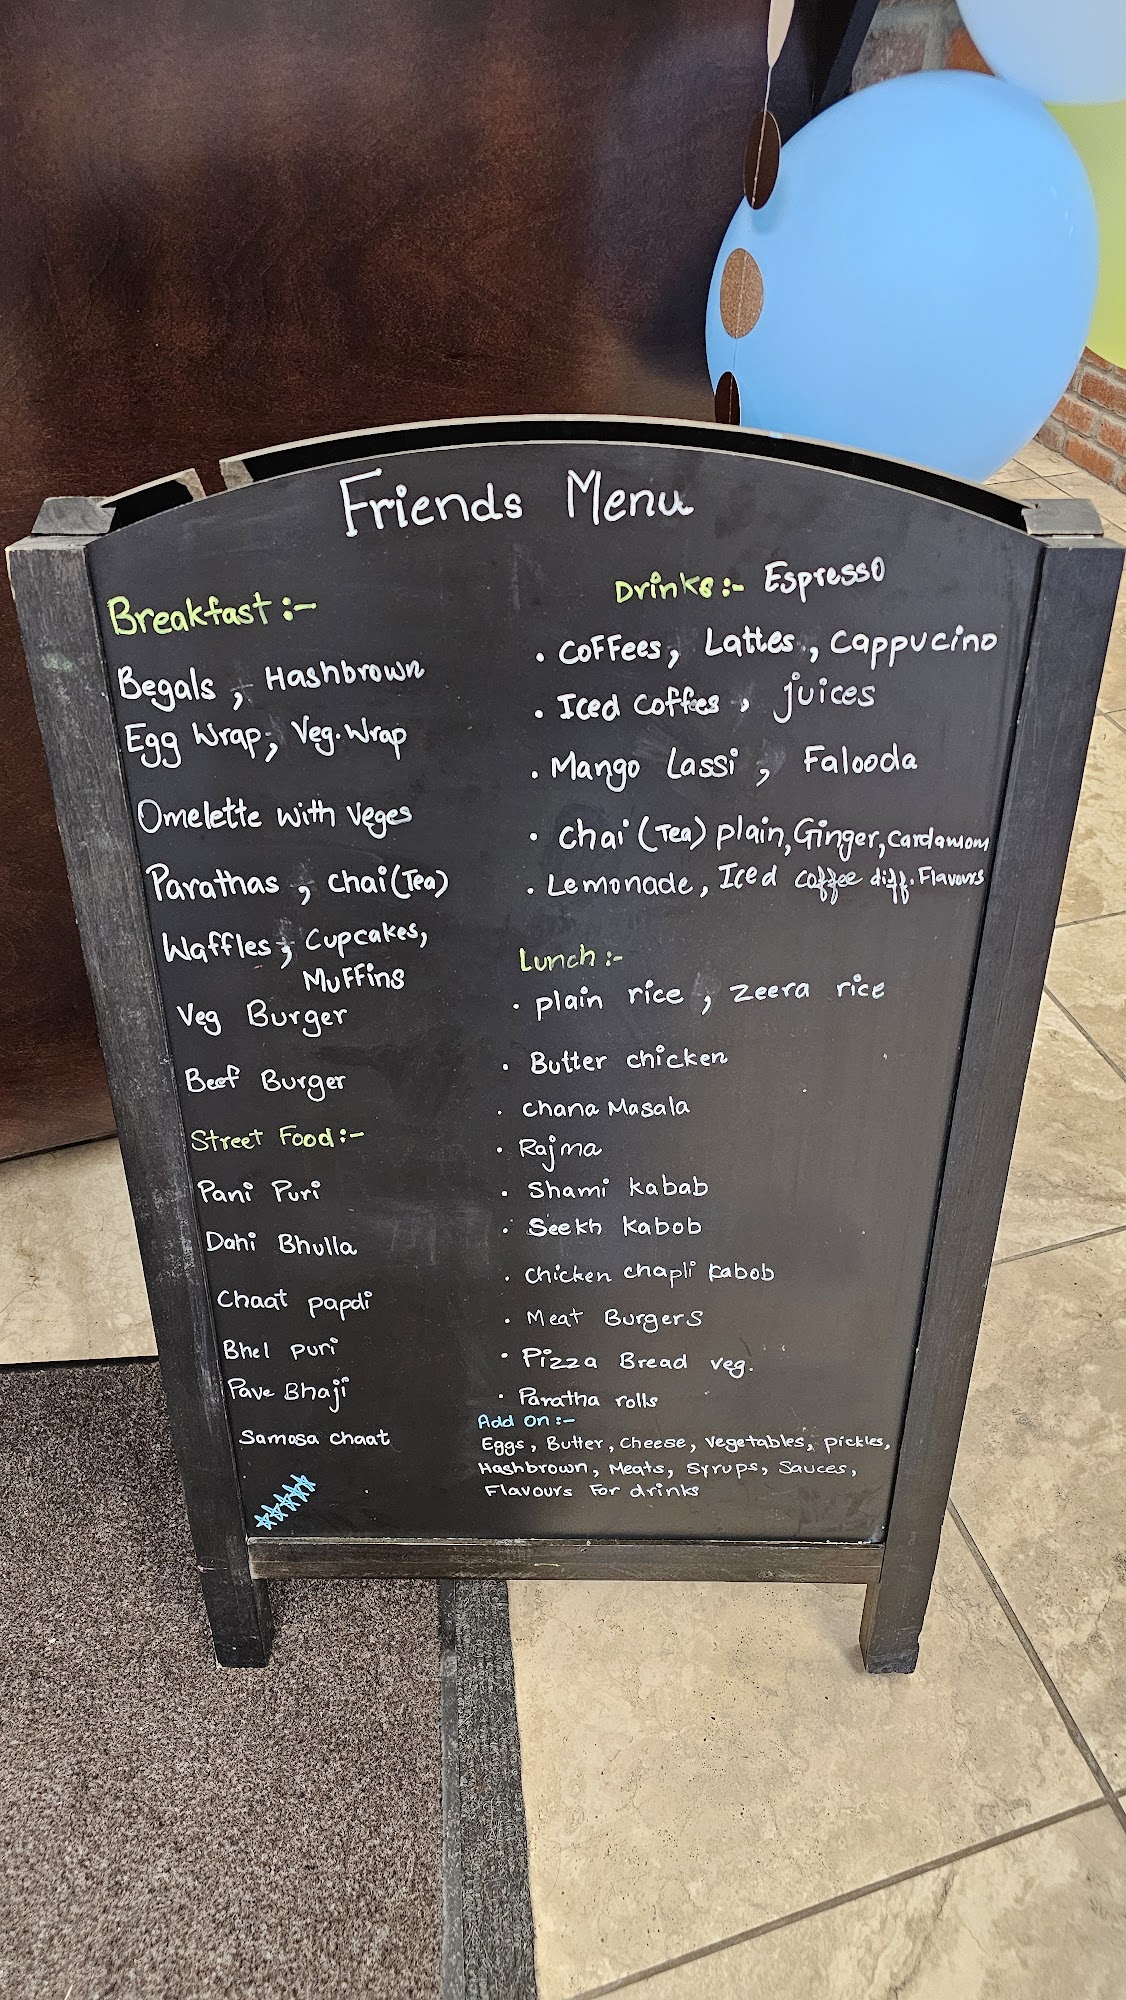 Friends Menu
Breakfast :-
Begals , Hashbrown
Egg Wrap, Veg. Wrap
Omelette with Veges
Parathas , chai (Tea)
Waffles, Cupcakes,
Muffins
Veg Burger
Beef Burger
Street Food :-
Pani Puri
Dahi Bhulla
Chaat papdi
Bhel puri
Pave Bhaji
Samosa chaat
Drinks :- Espresso
. Coffees, Lattes , Cappucino
. Iced coffes , juices
. Mango Lassi , Falooda
. Chai (Tea) plain, Ginger, Cardamom
. Lemonade, Iced coffee diff. Flavours
Lunch :-
. plain rice , zeera rice
. Butter chicken
. chana Masala
. Rajma
. Shami kabab
. Seekh kabob
. chicken chapli kabob
. Meat Burgers
. Pizza Bread veg.
. Paratha rolls
Add On :-
Eggs, Butter, Cheese, Vegetables, pickles,
Hashbrown, Meats, Syrups, Sauces,
Flavours For drinks